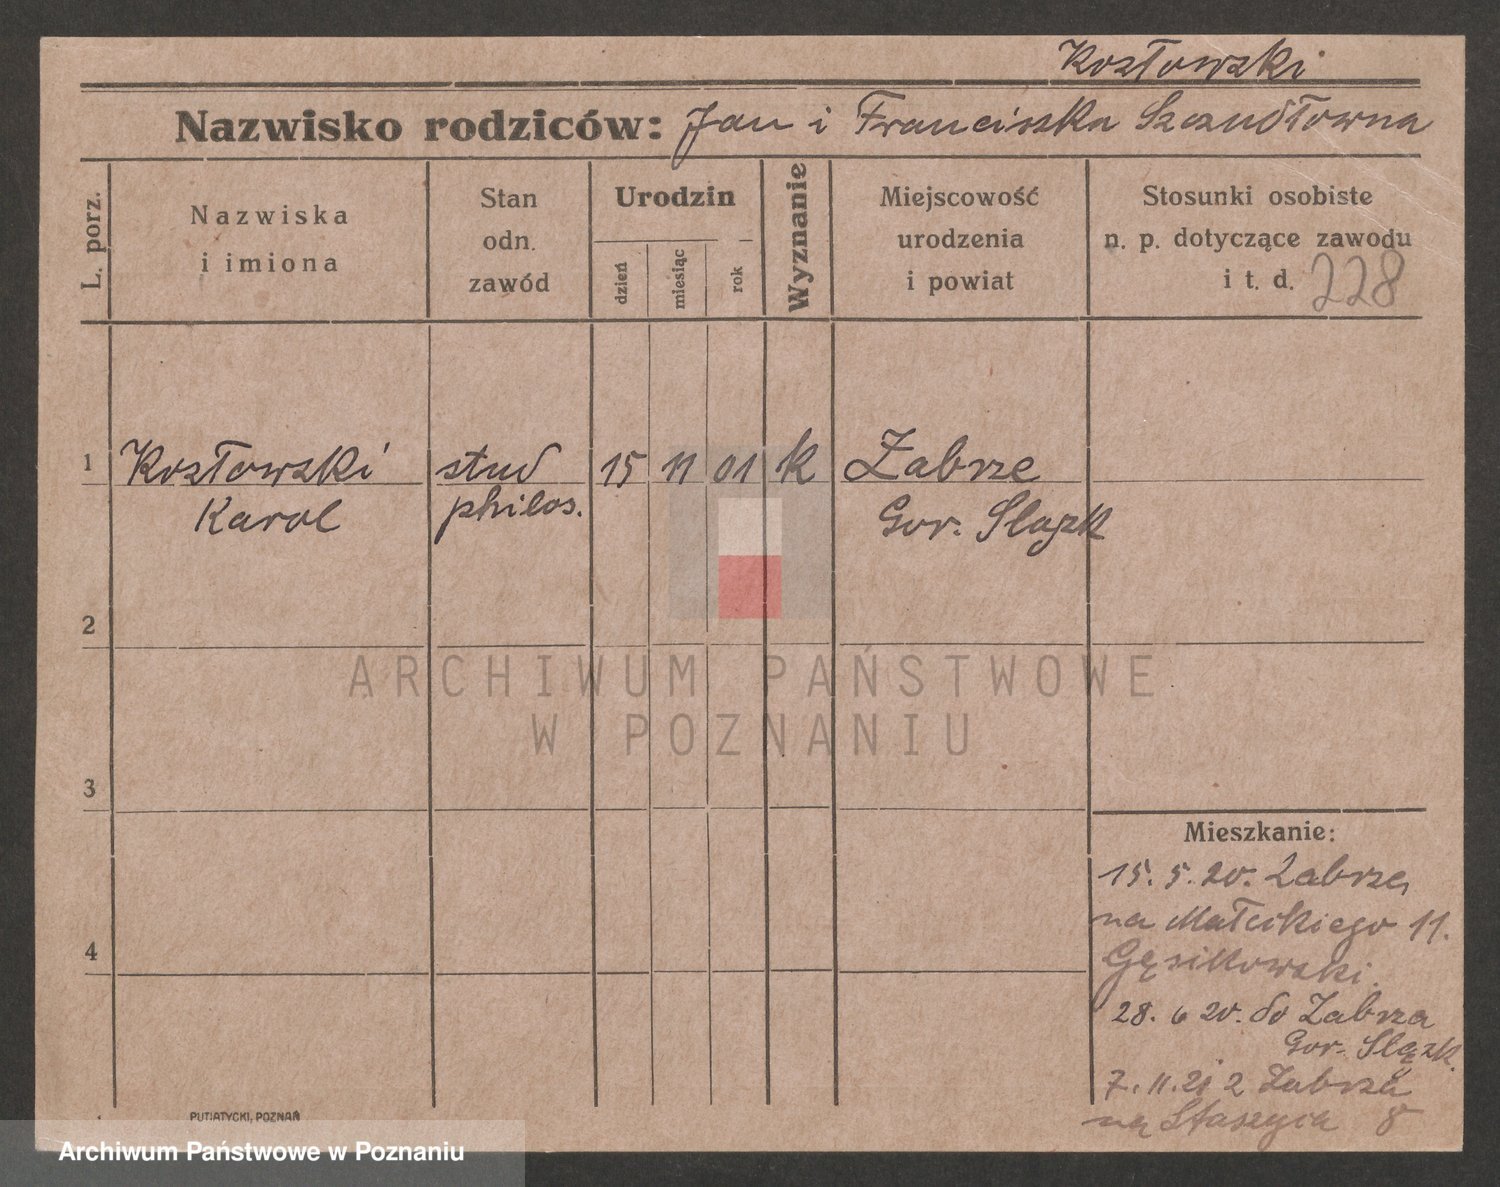 Kozłowski
Nazwisko rodziców: Jan i Franciszka Szczudłowna
L. porz.
Nazwiska
i imiona
Stan
odn.
zawód
Urodzin
dzień
miesiąc
rok
Wyznanie
Miejscowość
urodzenia
i powiat
Stosunki osobiste
n. p. dotyczące zawodu
i t. d. 228
1 Kozłowski stud 15 11 01 k Zabrze
Karol philos. Gor. Slązk
2
3
4
Mieszkanie:
15. 5. 20. Zabrze,
na Małeckiego 11.
28. 6 20. do Zabrza
Gor. Slązk.
7. 11. 21 z Zabrza
na Staszyca 8
PUTIATYCKI, POZNAŃ
ARCHIWUM PAŃSTWOWE
W POZNANIU
Archiwum Państwowe w Poznaniu